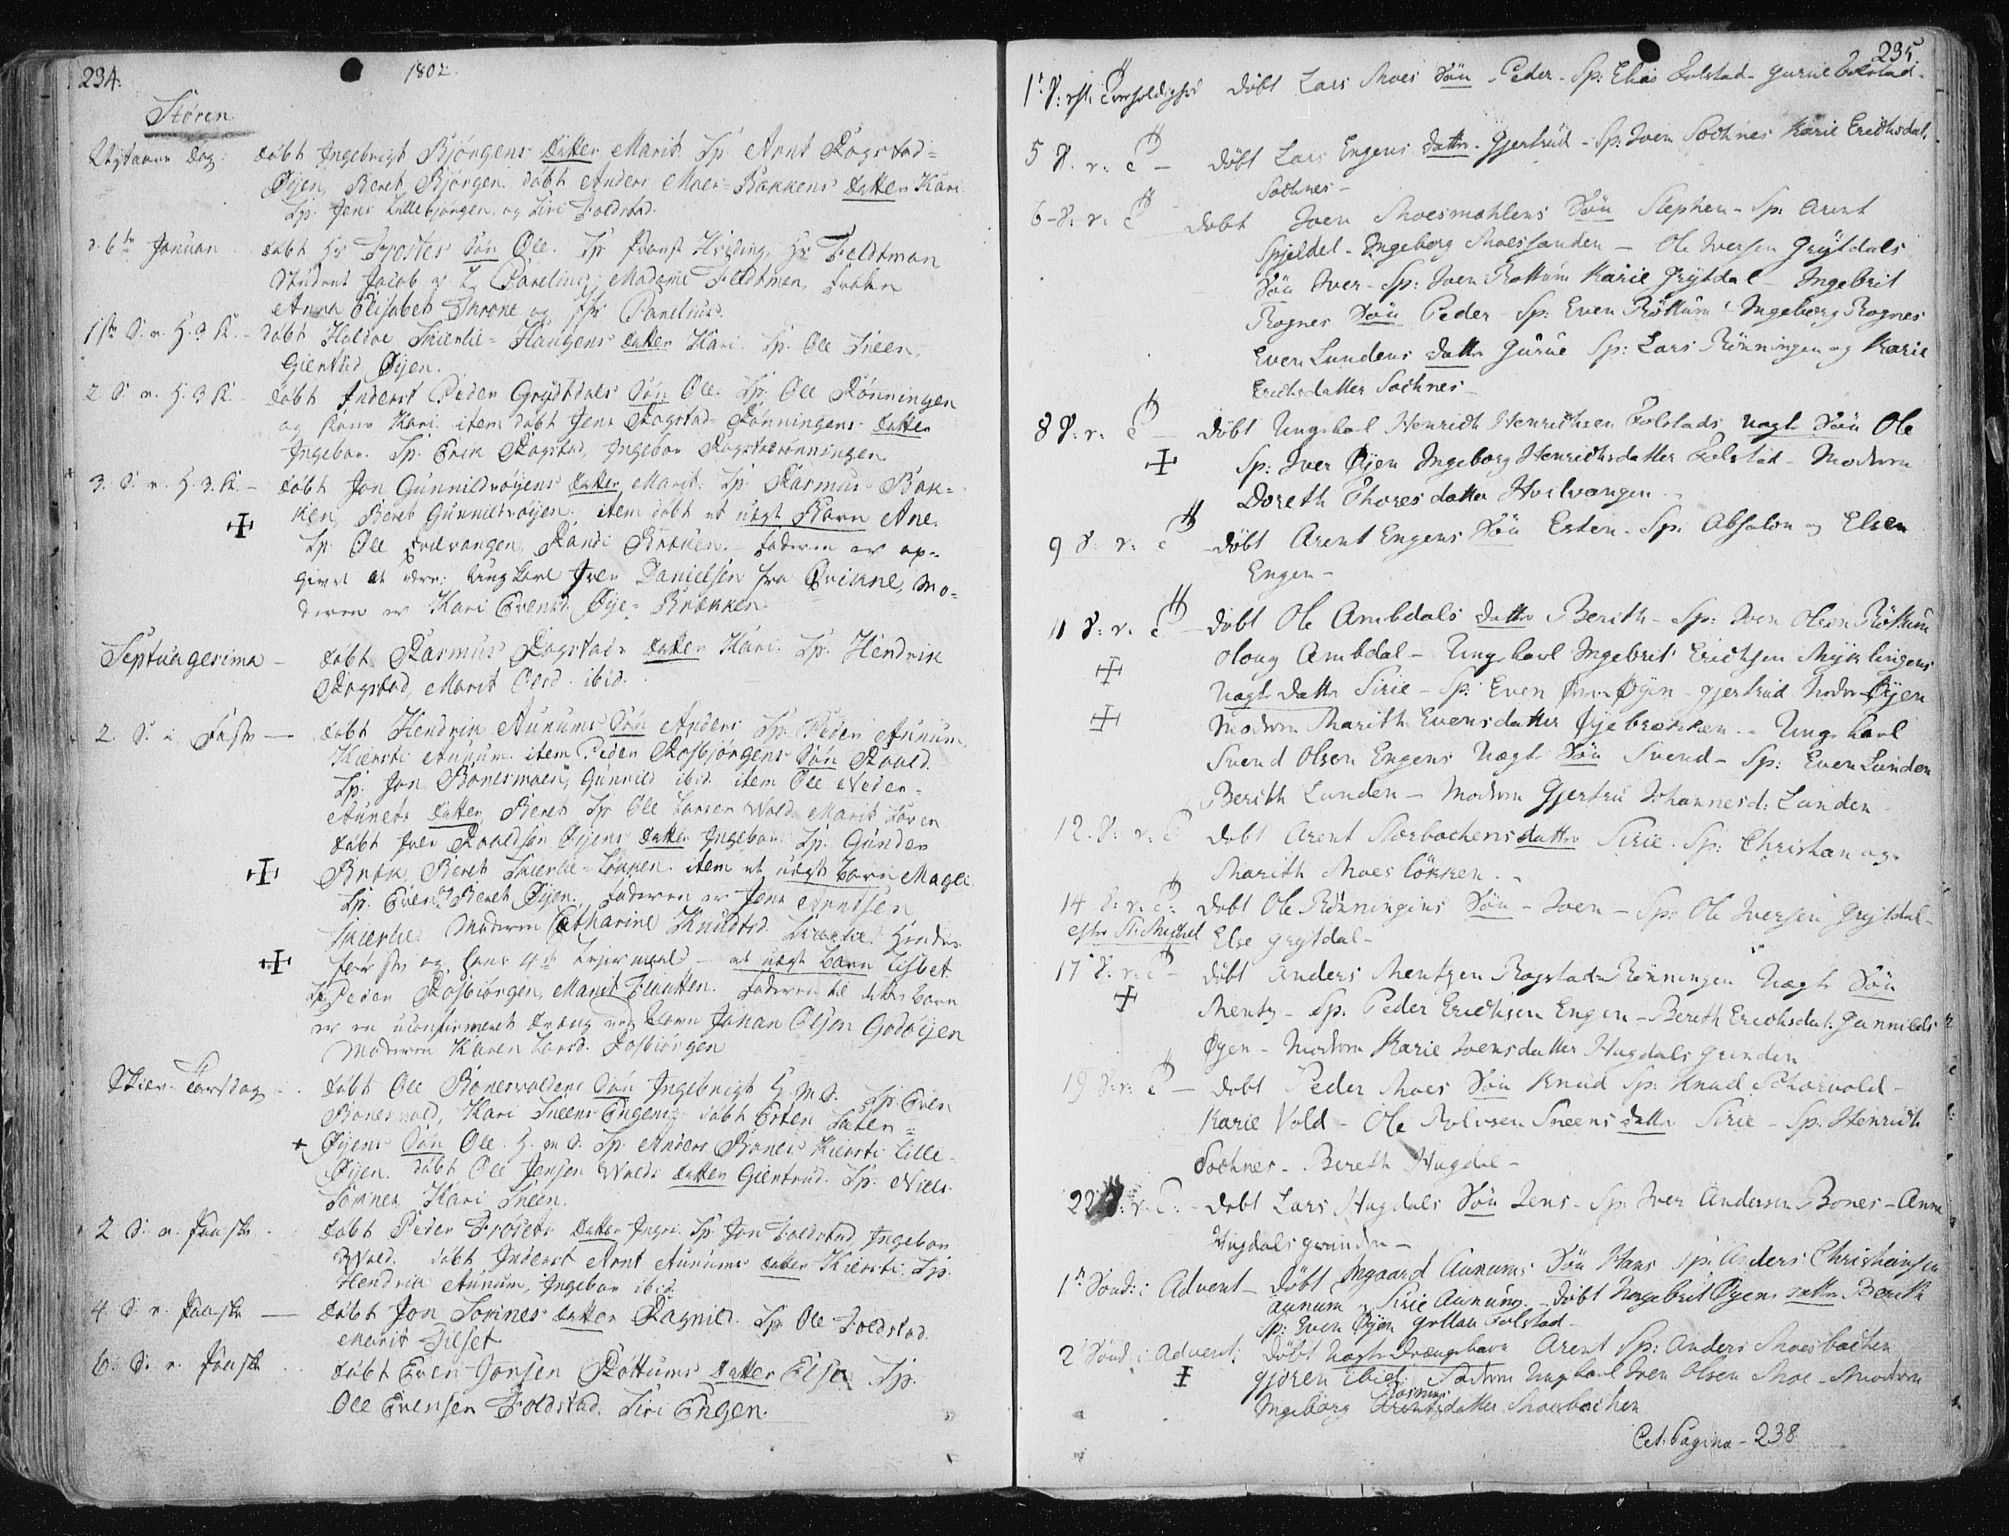 234.
1802.
Støren
Nytaars Dag: døbt Ingebrigt Bjørgens datter Marit. Sp. Arnt Rogstad-
Øyen, Beret Bjørgen. døbt Anders Moes-Bakkens datter Kari
Sp. Jens Lillebjørgen og Siri Foldstad.
d. 6te Januar døbt Hr Søn Ole. Sp. Hr Feldtman
Student Jacob og L Parelius, Madame Feldtman,
Anna Elisabet Throne og Parelius.
1ste S. n. H. 3 K. - døbt Haldoe Skierlie-Haugens datter Kari. Sp. Ole Sneen,
Giertrud Øyen.
2 S. n. H. 3 K. døbt Inderst Peder Grydtdals Søn Ole. Sp. Ole Rønningen
og Kone Kari. item døbt Jens Rogstad-Rønningens datter
Ingebor. Sp. Erik Rogstad, Ingebor Rogstadrønningen
3. S. n. H. 3. K. - døbt Jon Gunnildrøyens datter Marit. Sp. Rasmus Bak-
ken, Beret Gunnildrøyen. item døbt et uægt Barn Ane.
Sp. Ole Randi Brækken. Faderen er op-
givet at være: ung karl Iver Danielsen fra Qvikne, Mo-
deren er Kari Evensd. Øye-Brækken.
Septuagesima - døbt Rasmus Rogstads datter Kari. Sp. Hendrik
Rogstad, Marit Olsd. ibid.
2 S. i Faste - døbt Hendrik Aunums Søn Anders Sp. Peder Aunum,
Kiersti Aunum. item Peder Rosbjørgens Søn Roald.
Sp. Jon Bonesmoen, Gunnild ibid. item Ole Neder-
Aunets datter Beret Sp. Ole Larsen Wold Marit Soren
døbt Iver Roaldsøn Øyens datter Ingebor. Sp. Gunder
Bræk, Beret Skierlie-Løkken. item et uægt barn Magli
Sp. Even & Beret Øyen. Faderen er Jens Arntsen
Skierlie. Moderen Catharine Knudtsd. Skierlie. Hendes
første og hans 4de Leiermaal - et uægt barn Lisbet
Sp. Peder Rosbiørgen, Marit Flaatten. Faderen til dette barn
er en uconfirmeret dreng ved Navn Johan Olsen Godøyen
Moderen Karen Larsd. Rosbiørgen
Skier-Torsdag - døbt Ole Bonesvoldens Søn Ingebrigt H. M. D. Sp. Even
Bonesvold, Kari Sneens Engen; døbt Esten Sæter-
Øyens Søn Ole. H. M. D. Sp. Anders Bones Kiersti Lille-
Øyen. døbt Ole Jensen Wolds datter Giertrud. Sp. Niels
Soknes Kari Sneen.
2 S. n. Paaske døbt Peder Frøsets datter Ingri. Sp. Jon Foldstad, Ingebor
Wold. døbt Inderst Arnt Aunums datter Kiersti. Sp.
Hendrik Aunum, Ingebor ibid.
4. S. n. Paaske - døbt Jon Soknes datter Ragnild. Sp. Ole Foldstad.
Marit Filset
6. S. n. Paaske døbt Even Jonsen Røttums datter Else. Sp.
Ole Evensen Foldstad. Siri Engen.
235.
1. S: eft. Trefoldighed døbt Lars Moes Søn Peder - Sp: Elias Folstad - Guruc Folstad -
5 S. n. T - døbt Lars Engens datter Gjertrud - Sp: Iver Sochnes Karie Erichsdat.
Sochnes -
6 - S: n. T - døbt Iver Moesmohlens Søn Stephen - Sp: Arent
Spjeldet - Ingeborg Moessanden - Ole Iversen Grytdals
Søn Iver - Sp: Iver Røttum Karie Grytdal - Ingebrit
Rognes Søn Peder - Sp: Even Røttum Ingeborg Rognes
Even Lundens datter Gurue Sp: Lars Rønningen og Karie
Erichsdatter Sochnes -
8 S: n. T - døbt Ungkarl Henrich Henrichsen Folstads uægt Søn Ole
Sp: Iver Øyen Ingeborg Henrichsdatter Folstad - Moderen
Doreth Thoresdatter Horlvangen
9 S: n: T - døbt Arent Engens Søn Esten. Sp: Absalon og Elsen
Engen -
11 S: n. T - døbt Ole Ambdals datter Berith - Sp: Iver Olsen Røttum
Oloug Ambdal - Ungkarl Ingebrit Erichsen Myklingens
uægt datter Sirie - Sp: Even Øyen - Gjertrud Øyen
Moderen Marith Evensdatter Øyebrækken. - Ung karl
Svend Olsen Engens Uægt Søn Svend - Sp: Even Lunden
Berith Lunden - Moderen Gjertru Johannesd: Lunden
12. S: n: T døbt Arent Storbachens datter Sirie. Sp: Christian og
Marith Moes Løkken.
14 S: n: T: døbt Ole Rønningens Søn - Iver - Sp: Ole Iversen Grytdal -
efter St: Michel Else Grytdal -
17 S. n: T - døbt Anders Mentzen Rogstad-Rønningen Uægt Søn
Mentz - Sp. Peder Erichsen Engen - Bereth Erichsdat: Gunnilds
Øyen - Moderen Karie Iversdatter Hugdals grinden
19 S: n: T - døbt Peder Moes Søn Knud Sp: Knud
Karie Vold - Ole Rolvsen Sneens datter Sirie - Sp. Henrich
Sochnes - Bereth Hugdal -
22 S: n: T: - døbt Lars Hugdals Søn Jens - Sp: Iver Andersen Bones - Anne
Hugdalsgrinden -
1ste Sønd: i Advent - døbt Ingaard Aunums Søn Hans Sp: Anders Christiansen
Aunum og Sirie Aunum - døbt Ingebrit Øyens datter Berith
Sp: Even Øyen Gollau Folstad -
2 Sønd: i Advent: døbt Uægte drengebarn Arent Sp: Anders Moesbachen
Gjøren Ibid: Faderen Ungkarl Iver Olsen Moe - Moderen
Ingeborg Rasmus Arentsdatter Moesbachen
Cet: Pagina - 238